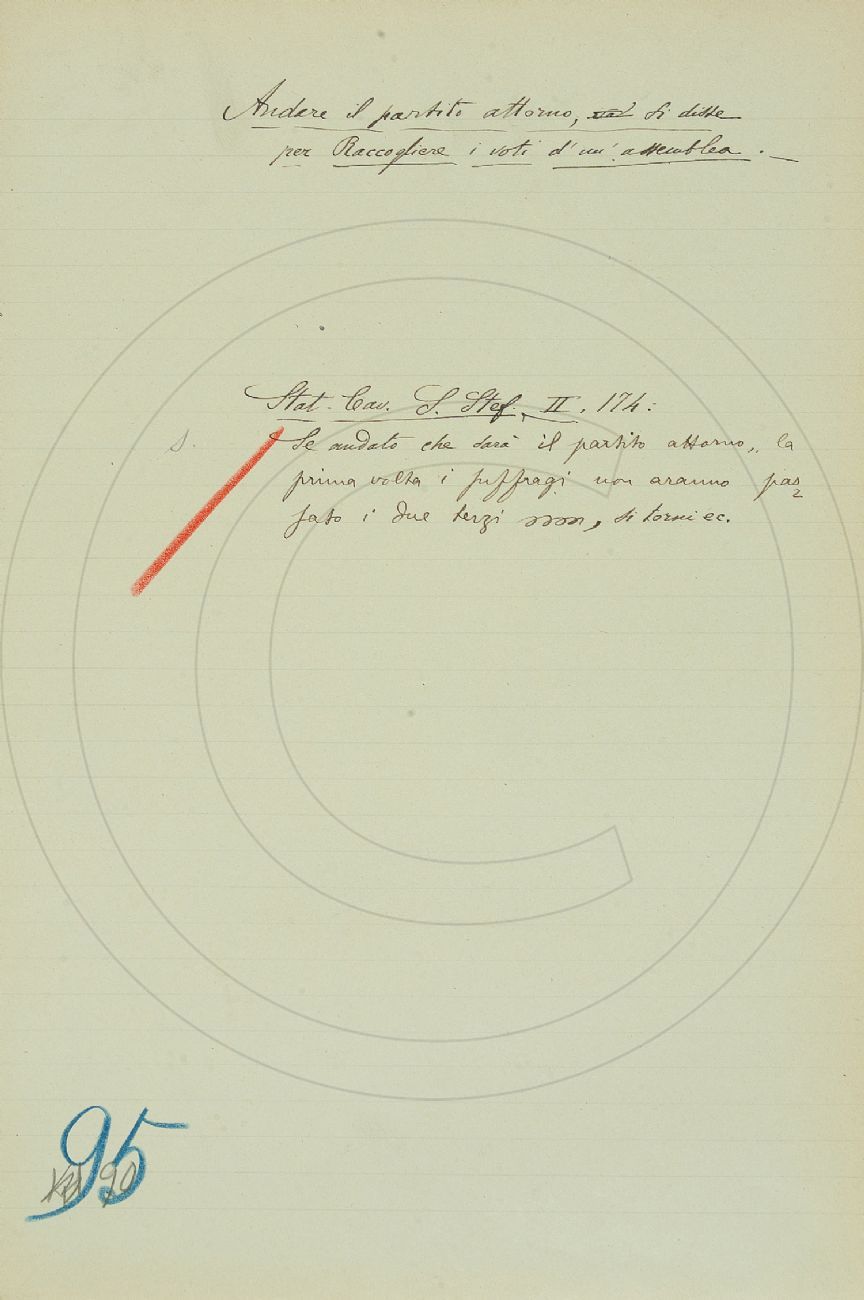 Andare il partito attorno, si disse
per Raccogliere i voti d'un'assemblea.
Stat. Cav. S. Stef. II, 174:
S. Se andato che sarà il partito attorno, la
prima volta i suffragi non aranno pas
sato i due terzi, si torni ec.
95